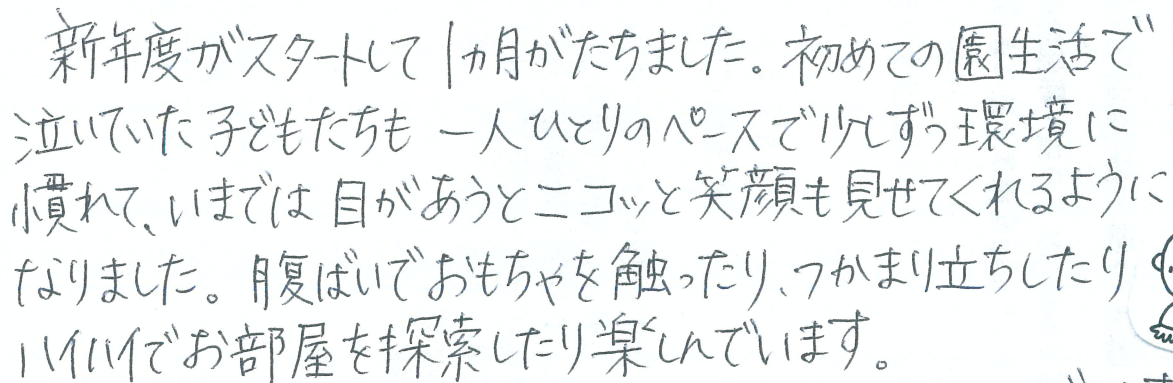 新年度がスタートして1ヵ月がたちました。初めての園生活で
泣いていた子どもたちも 一人ひとりのペースで少しずつ環境に
慣れて、いまでは目があうとニコッと笑顔も見せてくれるように
なりました。腹ばいでおもちゃを触ったり、つかまり立ちしたり
ハイハイでお部屋を探索したり楽しんでいます。